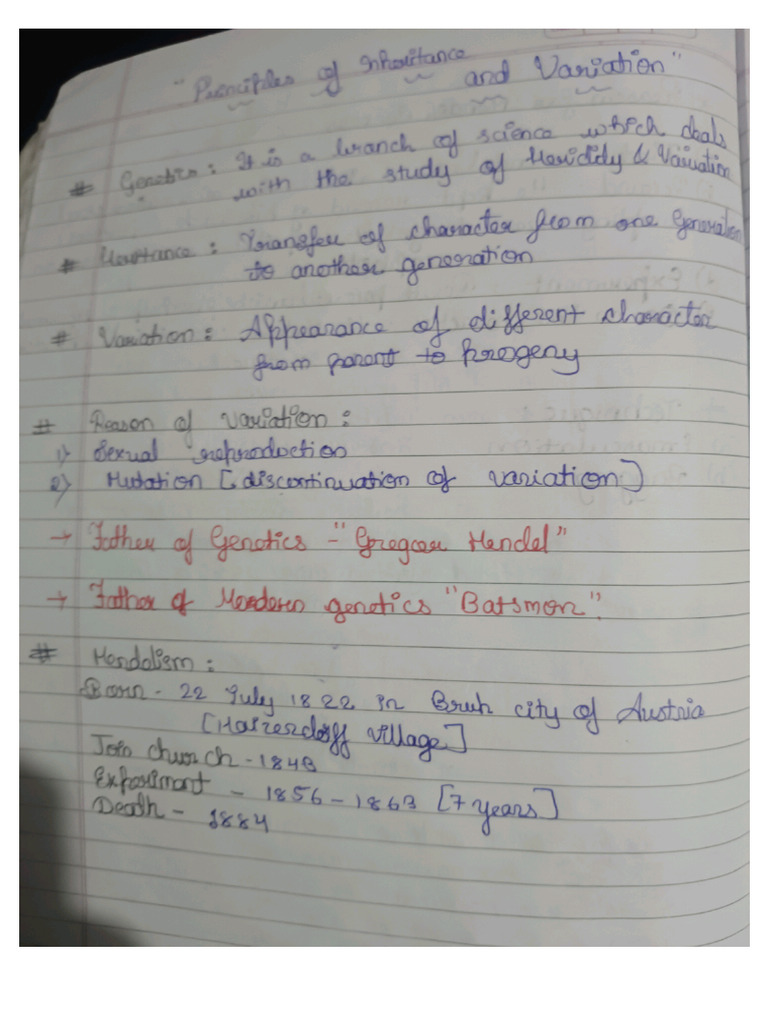 "Principles of Inheritance
and Variation"
# Genetics : It is a branch of science which deals
with the study of Heriddy & Variation
# Heritance : Transfer of character from one Generation
to another generation
# Variation : Appearance of different character
from parent to progeny
# Reason of Variation :
1) Sexual reproduction
2) Mutation [discontinuation of variation]
→ Father of Genetics - "Gregoar Mendel"
→ Father of Mordern genetics "Batsmon".
# Mendalism :
Born - 22 July 1822 in Bruh city of Austria
[Haizendorff village]
Join church - 1843
Experimant - 1856 - 1863 [7 years]
Death - 1884